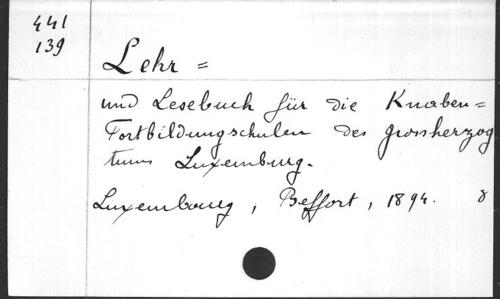 441
139
Lehr =
und Lesebuch für die Knaben=
Fortbildungsschulen des grossherzog
tums Luxemburg.
Luxembourg, Beffort, 1894. 8